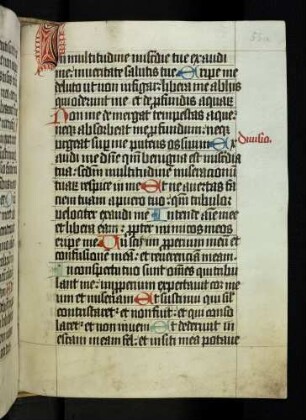 In multitudine misedie tue exaudi
me: in veritate salutis tue Eripe me
de luto ut non infigar: libera me ab hiis
qui oderunt me et de pfundis aquarum
Non me demergat tempestas aque:
neqz absorbeat me pfundum: neqz
urgeat sup me puteus os suum Ex
audi me dne qm benigna est misedia
tua: sedm multitudine miseracionum
tuarum respice in me Et ne avertas fa
ciem tuam a puero tuo: qm tribulor
velociter exaudi me Intende aie mee
et libera eam: ppter inimicos meos
eripe me Tu scis impperium meum et
confusione mea: et reverencia meam
In conspectu tuo sunt omes qui tribu
lant me: impperium expectavit cor me
um et miseriam Et sustinui qui sil
contristaret: et non fuit: et qui conso
laret: et non inveni Et dederunt in
escam meam fel: et in siti mea potave
divisio